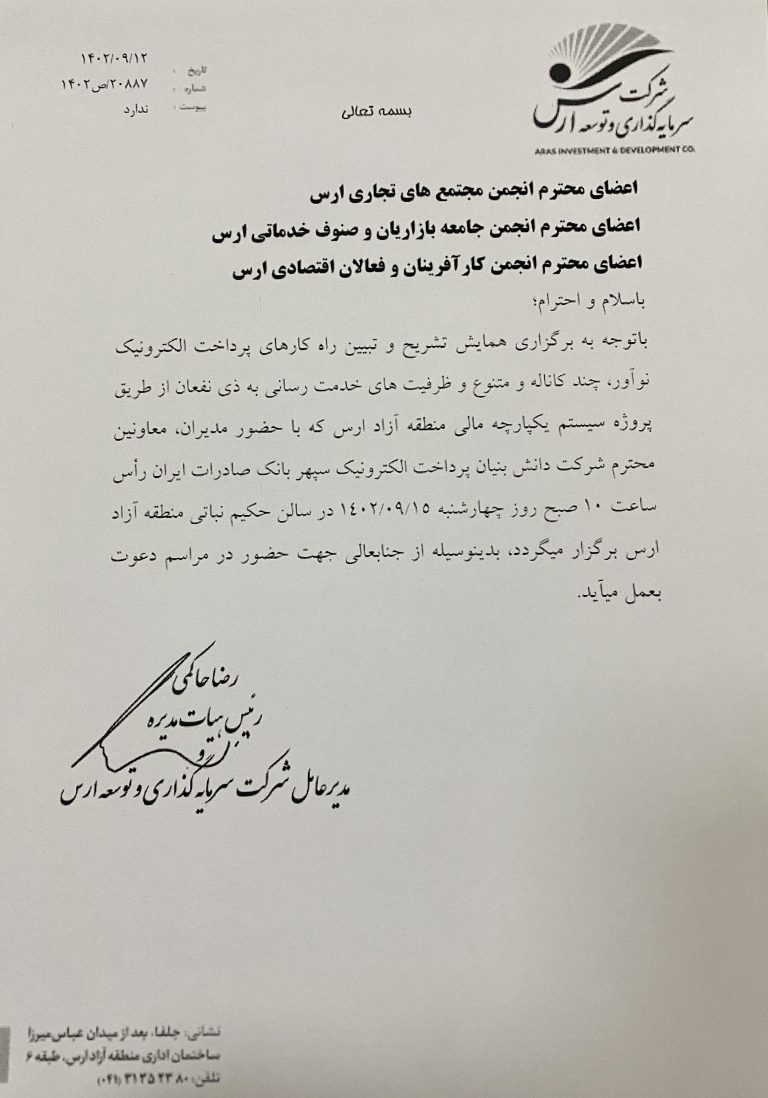 شرکت
سرمایه گذاری و توسعه ارس
ARAS INVESTMENT & DEVELOPMENT CO.
تاریخ : ۱۴۰۲/۰۹/۱۲
شماره : ۲۰۸۸۷/ص۱۴۰۲
پیوست : ندارد
بسمه تعالی
اعضای محترم انجمن مجتمع های تجاری ارس
اعضای محترم انجمن جامعه بازاریان و صنوف خدماتی ارس
اعضای محترم انجمن کارآفرینان و فعالان اقتصادی ارس
باسلام و احترام؛
باتوجه به برگزاری همایش تشریح و تبیین راه کارهای پرداخت الکترونیک
نوآور، چند کاناله و متنوع و ظرفیت های خدمت رسانی به ذی نفعان از طریق
پروژه سیستم یکپارچه مالی منطقه آزاد ارس که با حضور مدیران، معاونین
محترم شرکت دانش بنیان پرداخت الکترونیک سپهر بانک صادرات ایران رأس
ساعت ۱۰ صبح روز چهارشنبه ۱٤۰۲/۰۹/۱٥ در سالن حکیم نباتی منطقه آزاد
ارس برگزار میگردد، بدینوسیله از جنابعالی جهت حضور در مراسم دعوت
بعمل میآید.
رضا حاکمی
رئیس هیات مدیره
و
مدیرعامل شرکت سرمایه گذاری و توسعه ارس
نشانی: جلفا، بعد از میدان عباس میرزا
ساختمان اداری منطقه آزاد ارس، طبقه ۶
تلفن: ۸۰ ۲۳ ۳۱۳۵ (۰۴۱)